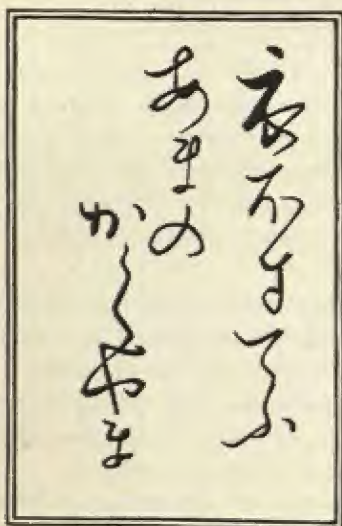 衣ほすてふ
あまの
かぐやま